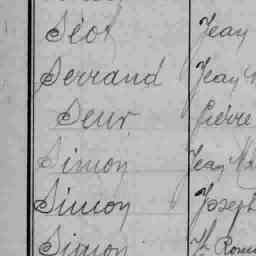 Séot Jean
Serrand Jean
Seur Pierre
Simon Jean
Simon Joseph
Simon